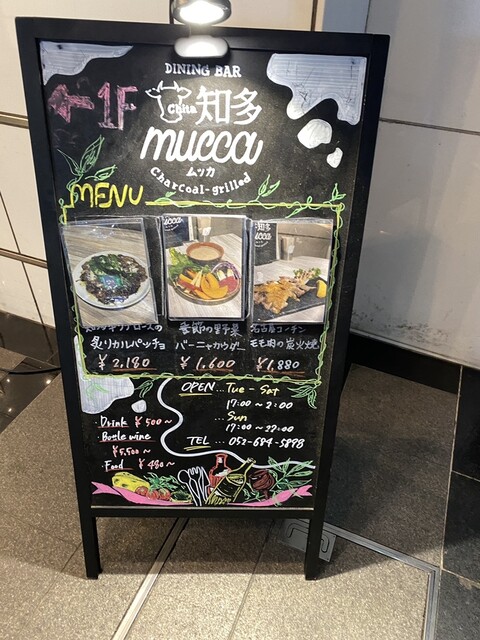 DINING BAR
Chita
知多
mucca
ムッカ
Charcoal-grilled
←1F
MENU
炙りカルパッチョ
¥2,180
季節の野菜
バーニャカウダー
¥1,600
名古屋コーチン
モモ肉の炭火焼
¥1,880
OPEN...Tue-Sat
17:00~2:00
...Sun
17:00~22:00
TEL...052-684-5898
・Drink ¥500~
・Bottle wine
¥5,500~
・Food ¥480~